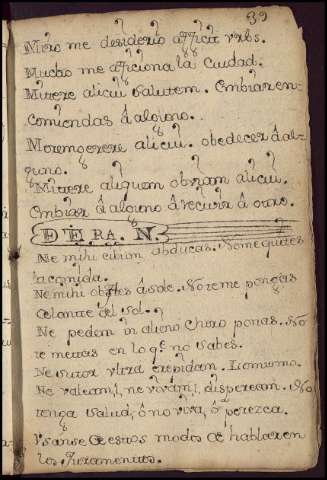 39
Miro me desiderio afficit vrbs.
Mucho me afficiona la Ciudad.
Mittere alicui salutem. Embiar en-
comiendas â alguno.
Morem gerere alicui. obedecer â al-
guno.
Mittere aliquem obviam alicui.
Embiar â alguno â recivir â otro.
DE LA. N.
Ne mihi cibum abducas. No me quites
la comida.
Ne mihi obstes â sole. No te me pongas
delante del sol.
Ne pedem in alieno choro ponas. No
te metas en lo q.e no sabes.
Ne sutor vltra crepidam. Lo mismo.
Ne valeam, ne vivam, dispeream. No
tenga salud, ô no viva, ô perezca.
Vsanse de estos modos de hablar en
los juramentos.